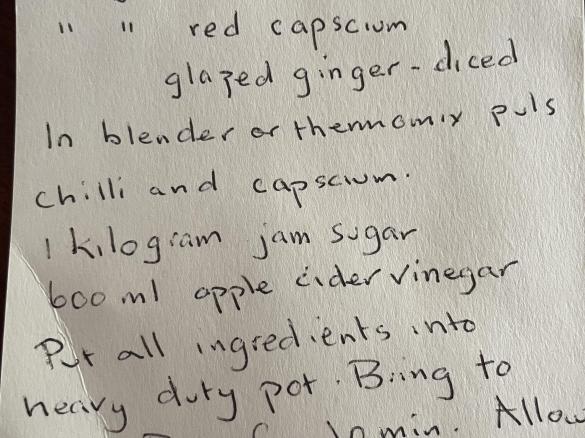 " " red capscium
glazed ginger - diced
In blender or thermomix puls
chilli and capscium.
1 kilogram jam sugar
600 ml apple cider vinegar
Put all ingredients into
heavy duty pot. Bring to
min. Allow